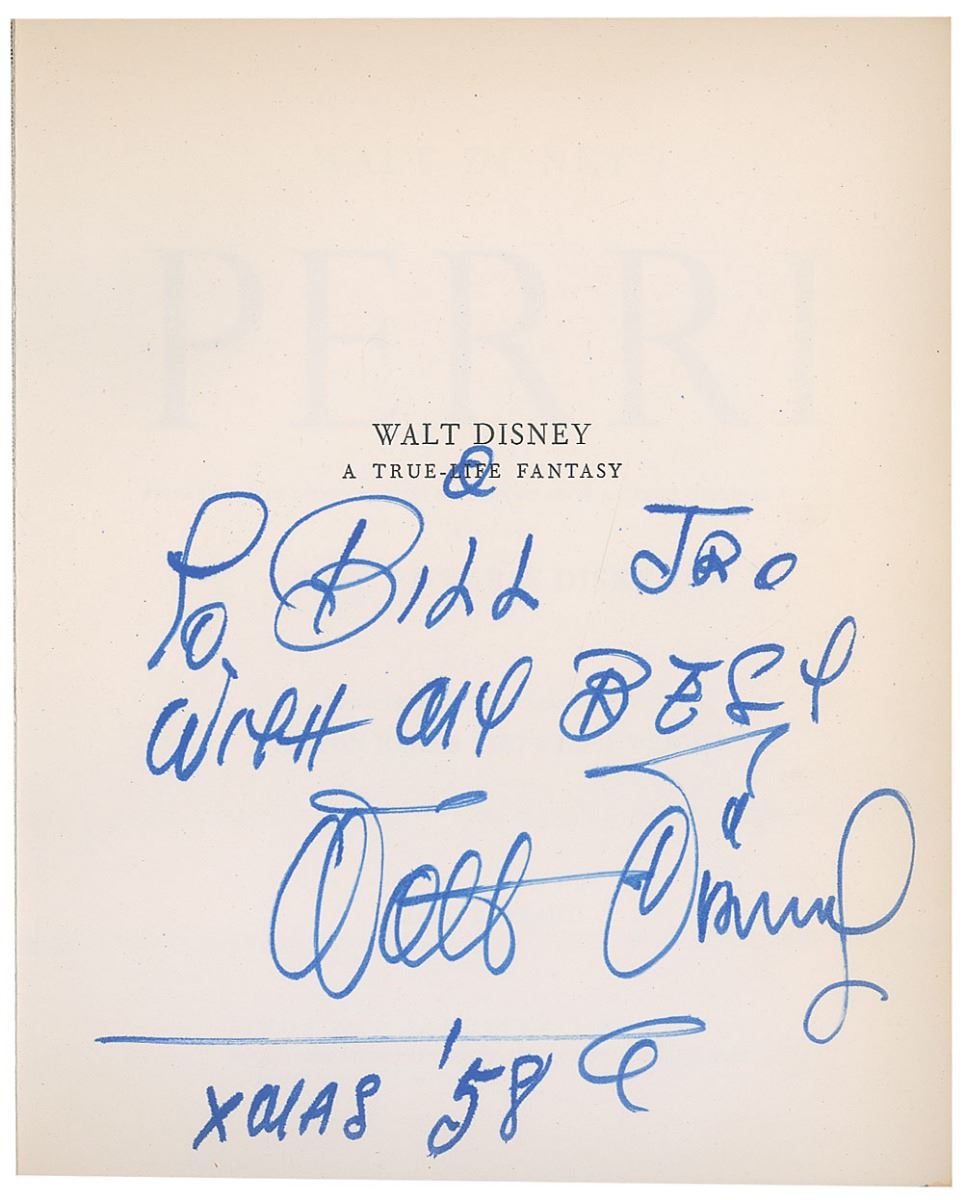 PERRI
WALT DISNEY
A TRUE-LIFE FANTASY
To BILL JR.
WITH MY BEST
Walt Disney
XMAS '58